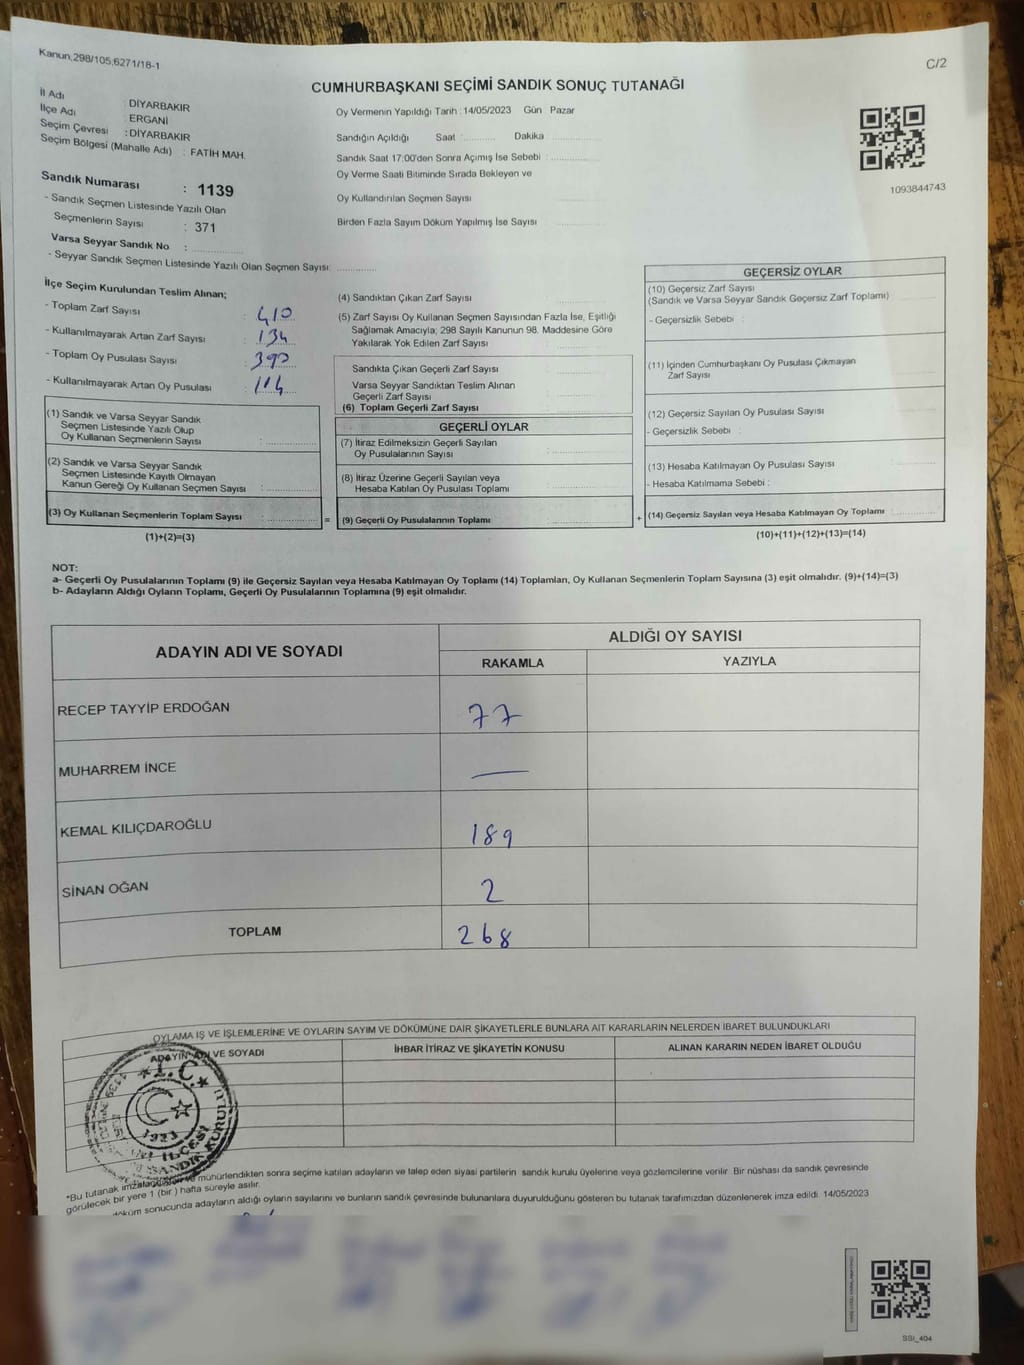 Kanun,298/105,6271/18-1
C/2
CUMHURBAŞKANI SEÇİMİ SANDIK SONUÇ TUTANAĞI
İl Adı : DİYARBAKIR
İlçe Adı : ERGANİ
Seçim Çevresi : DİYARBAKIR
Seçim Bölgesi (Mahalle Adı) : FATİH MAH.
Sandık Numarası : 1139
- Sandık Seçmen Listesinde Yazılı Olan
Seçmenlerin Sayısı : 371
Varsa Seyyar Sandık No :
- Seyyar Sandık Seçmen Listesinde Yazılı Olan Seçmen Sayısı:
Oy Vermenin Yapıldığı Tarih : 14/05/2023 Gün Pazar
Sandığın Açıldığı Saat : Dakika
Sandık Saat 17:00'den Sonra Açımış İse Sebebi :
Oy Verme Saati Bitiminde Sırada Bekleyen ve
Oy Kullandırılan Seçmen Sayısı
Birden Fazla Sayım Döküm Yapılmış İse Sayısı
1093844743
İlçe Seçim Kurulundan Teslim Alınan;
- Toplam Zarf Sayısı : 410
- Kullanılmayarak Artan Zarf Sayısı : 134
- Toplam Oy Pusulası Sayısı :
- Kullanılmayarak Artan Oy Pusulası : 114
(1) Sandık ve Varsa Seyyar Sandık
Seçmen Listesinde Yazılı Olup
Oy Kullanan Seçmenlerin Sayısı :
(2) Sandık ve Varsa Seyyar Sandık
Seçmen Listesinde Kayıtlı Olmayan
Kanun Gereği Oy Kullanan Seçmen Sayısı :
(3) Oy Kullanan Seçmenlerin Toplam Sayısı :
(1)+(2)=(3)
=
(4) Sandıktan Çıkan Zarf Sayısı
(5) Zarf Sayısı Oy Kullanan Seçmen Sayısından Fazla İse, Eşitliği
Sağlamak Amacıyla; 298 Sayılı Kanunun 98. Maddesine Göre
Yakılarak Yok Edilen Zarf Sayısı
Sandıkta Çıkan Geçerli Zarf Sayısı
Varsa Seyyar Sandıktan Teslim Alınan
Geçerli Zarf Sayısı
(6) Toplam Geçerli Zarf Sayısı
GEÇERLİ OYLAR
(7) İtiraz Edilmeksizin Geçerli Sayılan
Oy Pusulalarının Sayısı
(8) İtiraz Üzerine Geçerli Sayılan veya
Hesaba Katılan Oy Pusulası Toplamı
(9) Geçerli Oy Pusulalarının Toplamı
+
GEÇERSİZ OYLAR
(10) Geçersiz Zarf Sayısı
(Sandık ve Varsa Seyyar Sandık Geçersiz Zarf Toplamı)
- Geçersizlik Sebebi :
(11) İçinden Cumhurbaşkanı Oy Pusulası Çıkmayan
Zarf Sayısı
(12) Geçersiz Sayılan Oy Pusulası Sayısı
- Geçersizlik Sebebi :
(13) Hesaba Katılmayan Oy Pusulası Sayısı
- Hesaba Katılmama Sebebi :
(14) Geçersiz Sayılan veya Hesaba Katılmayan Oy Toplamı
(10)+(11)+(12)+(13)=(14)
NOT:
a- Geçerli Oy Pusulalarının Toplamı (9) ile Geçersiz Sayılan veya Hesaba Katılmayan Oy Toplamı (14) Toplamları, Oy Kullanan Seçmenlerin Toplam Sayısına (3) eşit olmalıdır. (9)+(14)=(3)
b- Adayların Aldığı Oyların Toplamı, Geçerli Oy Pusulalarının Toplamına (9) eşit olmalıdır.
ADAYIN ADI VE SOYADI
ALDIĞI OY SAYISI
RAKAMLA YAZIYLA
RECEP TAYYİP ERDOĞAN 77
MUHARREM İNCE —
KEMAL KILIÇDAROĞLU 189
SİNAN OĞAN 2
TOPLAM 268
OYLAMA İŞ VE İŞLEMLERİNE VE OYLARIN SAYIM VE DÖKÜMÜNE DAİR ŞİKAYETLERLE BUNLARA AİT KARARLARIN NELERDEN İBARET BULUNDUKLARI
ADAYIN ADI VE SOYADI İHBAR İTİRAZ VE ŞİKAYETİN KONUSU ALINAN KARARIN NEDEN İBARET OLDUĞU
T.C.
1923
İLÇESİ
SANDIK KURULU
*Bu tutanak mühürlendikten sonra seçime katılan adayların ve talep eden siyasi partilerin sandık kurulu üyelerine veya gözlemcilerine verilir. Bir nüshası da sandık çevresinde
görülecek bir yere 1 (bir ) hafta süreyle asılır.
döküm sonucunda adayların aldığı oyların sayılarını ve bunların sandık çevresinde bulunanlara duyurulduğunu gösteren bu tutanak tarafımızdan düzenlenerek imza edildi. 14/05/2023
SSİ_404